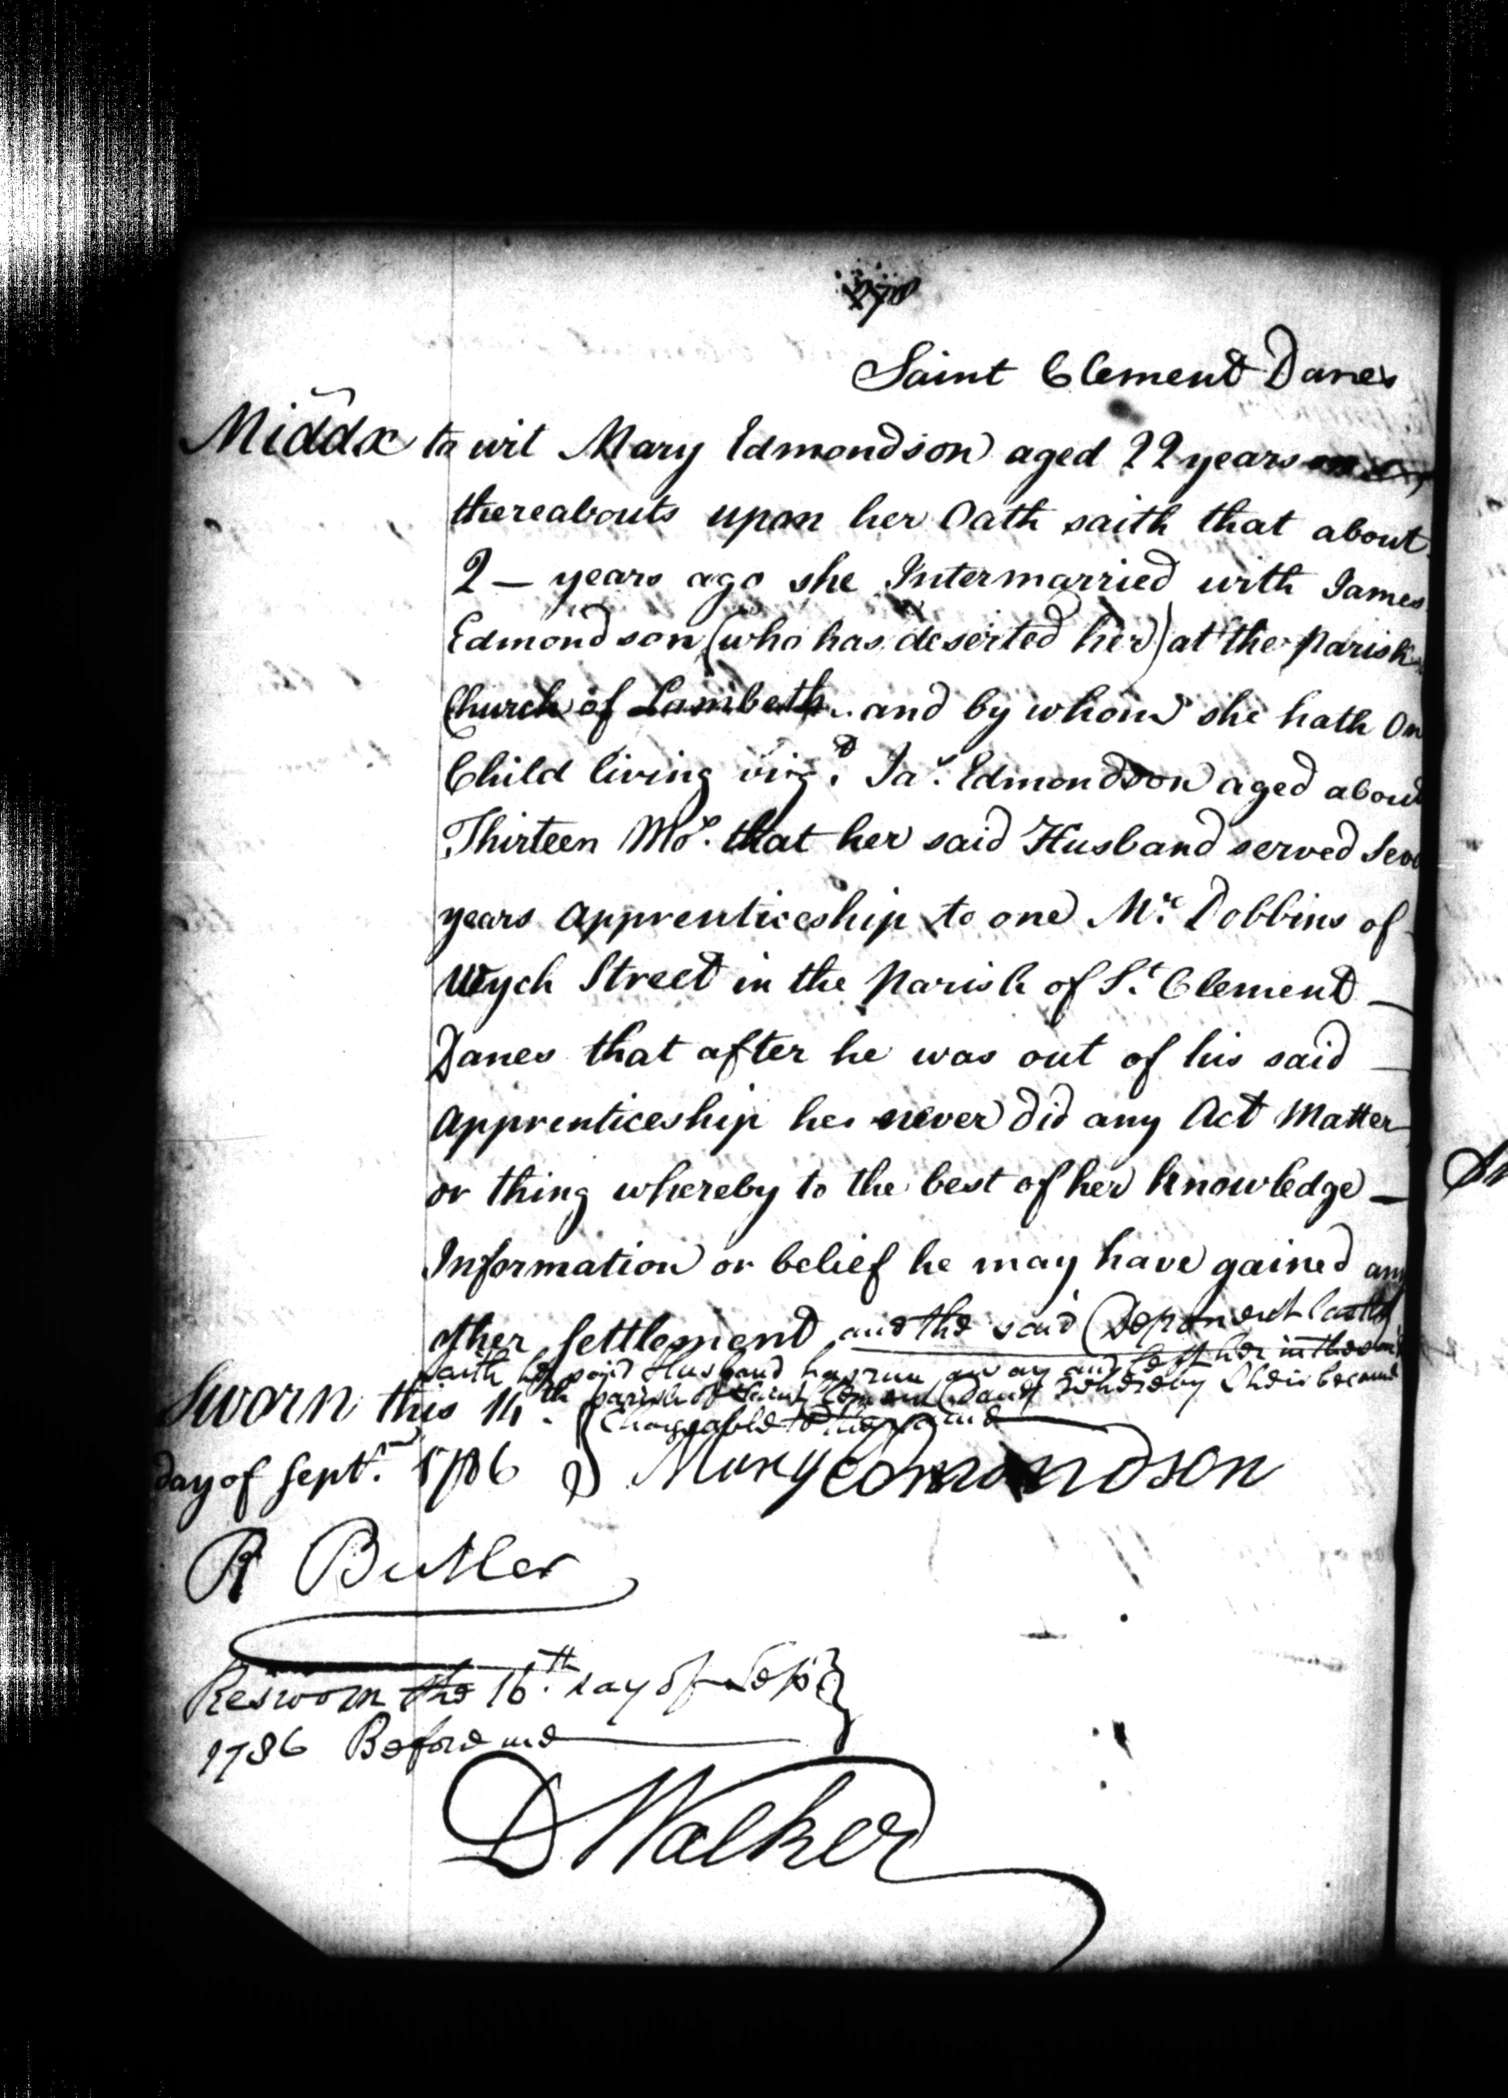 278
Saint Clement Danes
Middx to wit Mary Edmondson aged 22 years
thereabouts upon her Oath saith that about
2 — years ago she Intermarried with James
Edmondson (who has deserted her) at the parish
Church of Lambeth and by whom she hath On
Child living vizt. Jas. Edmondson aged about
Thirteen Mos. that her said Husband served Seve
years apprenticeship to one Mr. Dobbins of
Wych Street in the parish of St. Clement —
Danes that after he was out of his said —
apprenticeship he never did any Act Matter
or thing whereby to the best of her knowledge —
Information or belief he may have gained any
other settlement and the said Deponent lastly
saith her said Husband has run away and left her in the said
parish of Saint Clement Danes whereby she is become
Chargeable to the same
Sworn this 14th.
day of Sept. 1786 Mary Edmondson
R Butler
Resworn the 16th. day of Sepr
1786 Before me
D Walker